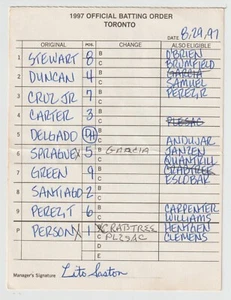 1997 OFFICIAL BATTING ORDER
TORONTO
DATE 8/29/97
ORIGINAL POS. CHANGE ALSO ELIGIBLE
1 STEWART 8 B C O'BRIEN BRUMFIELD
2 DUNCAN 4 B C GARCIA SAMUEL
3 CRUZ JR 7 B C PEREZ, R
4 CARTER 3 B C PLESAC
5 DELGADO B C ANDUJAR
6 SPRAGUE 5 B GARCIA C JANZEN QUANTRILL
7 GREEN 9 B C CRABTREE ESCOBAR
8 SANTIAGO 2 B C
9 PEREZ, T 6 B C CARPENTER WILLIAMS
P PERSON 1 CRABTREE HENTGEN
C PLESAC CLEMENS
D
E
Manager's Signature Cito Gaston